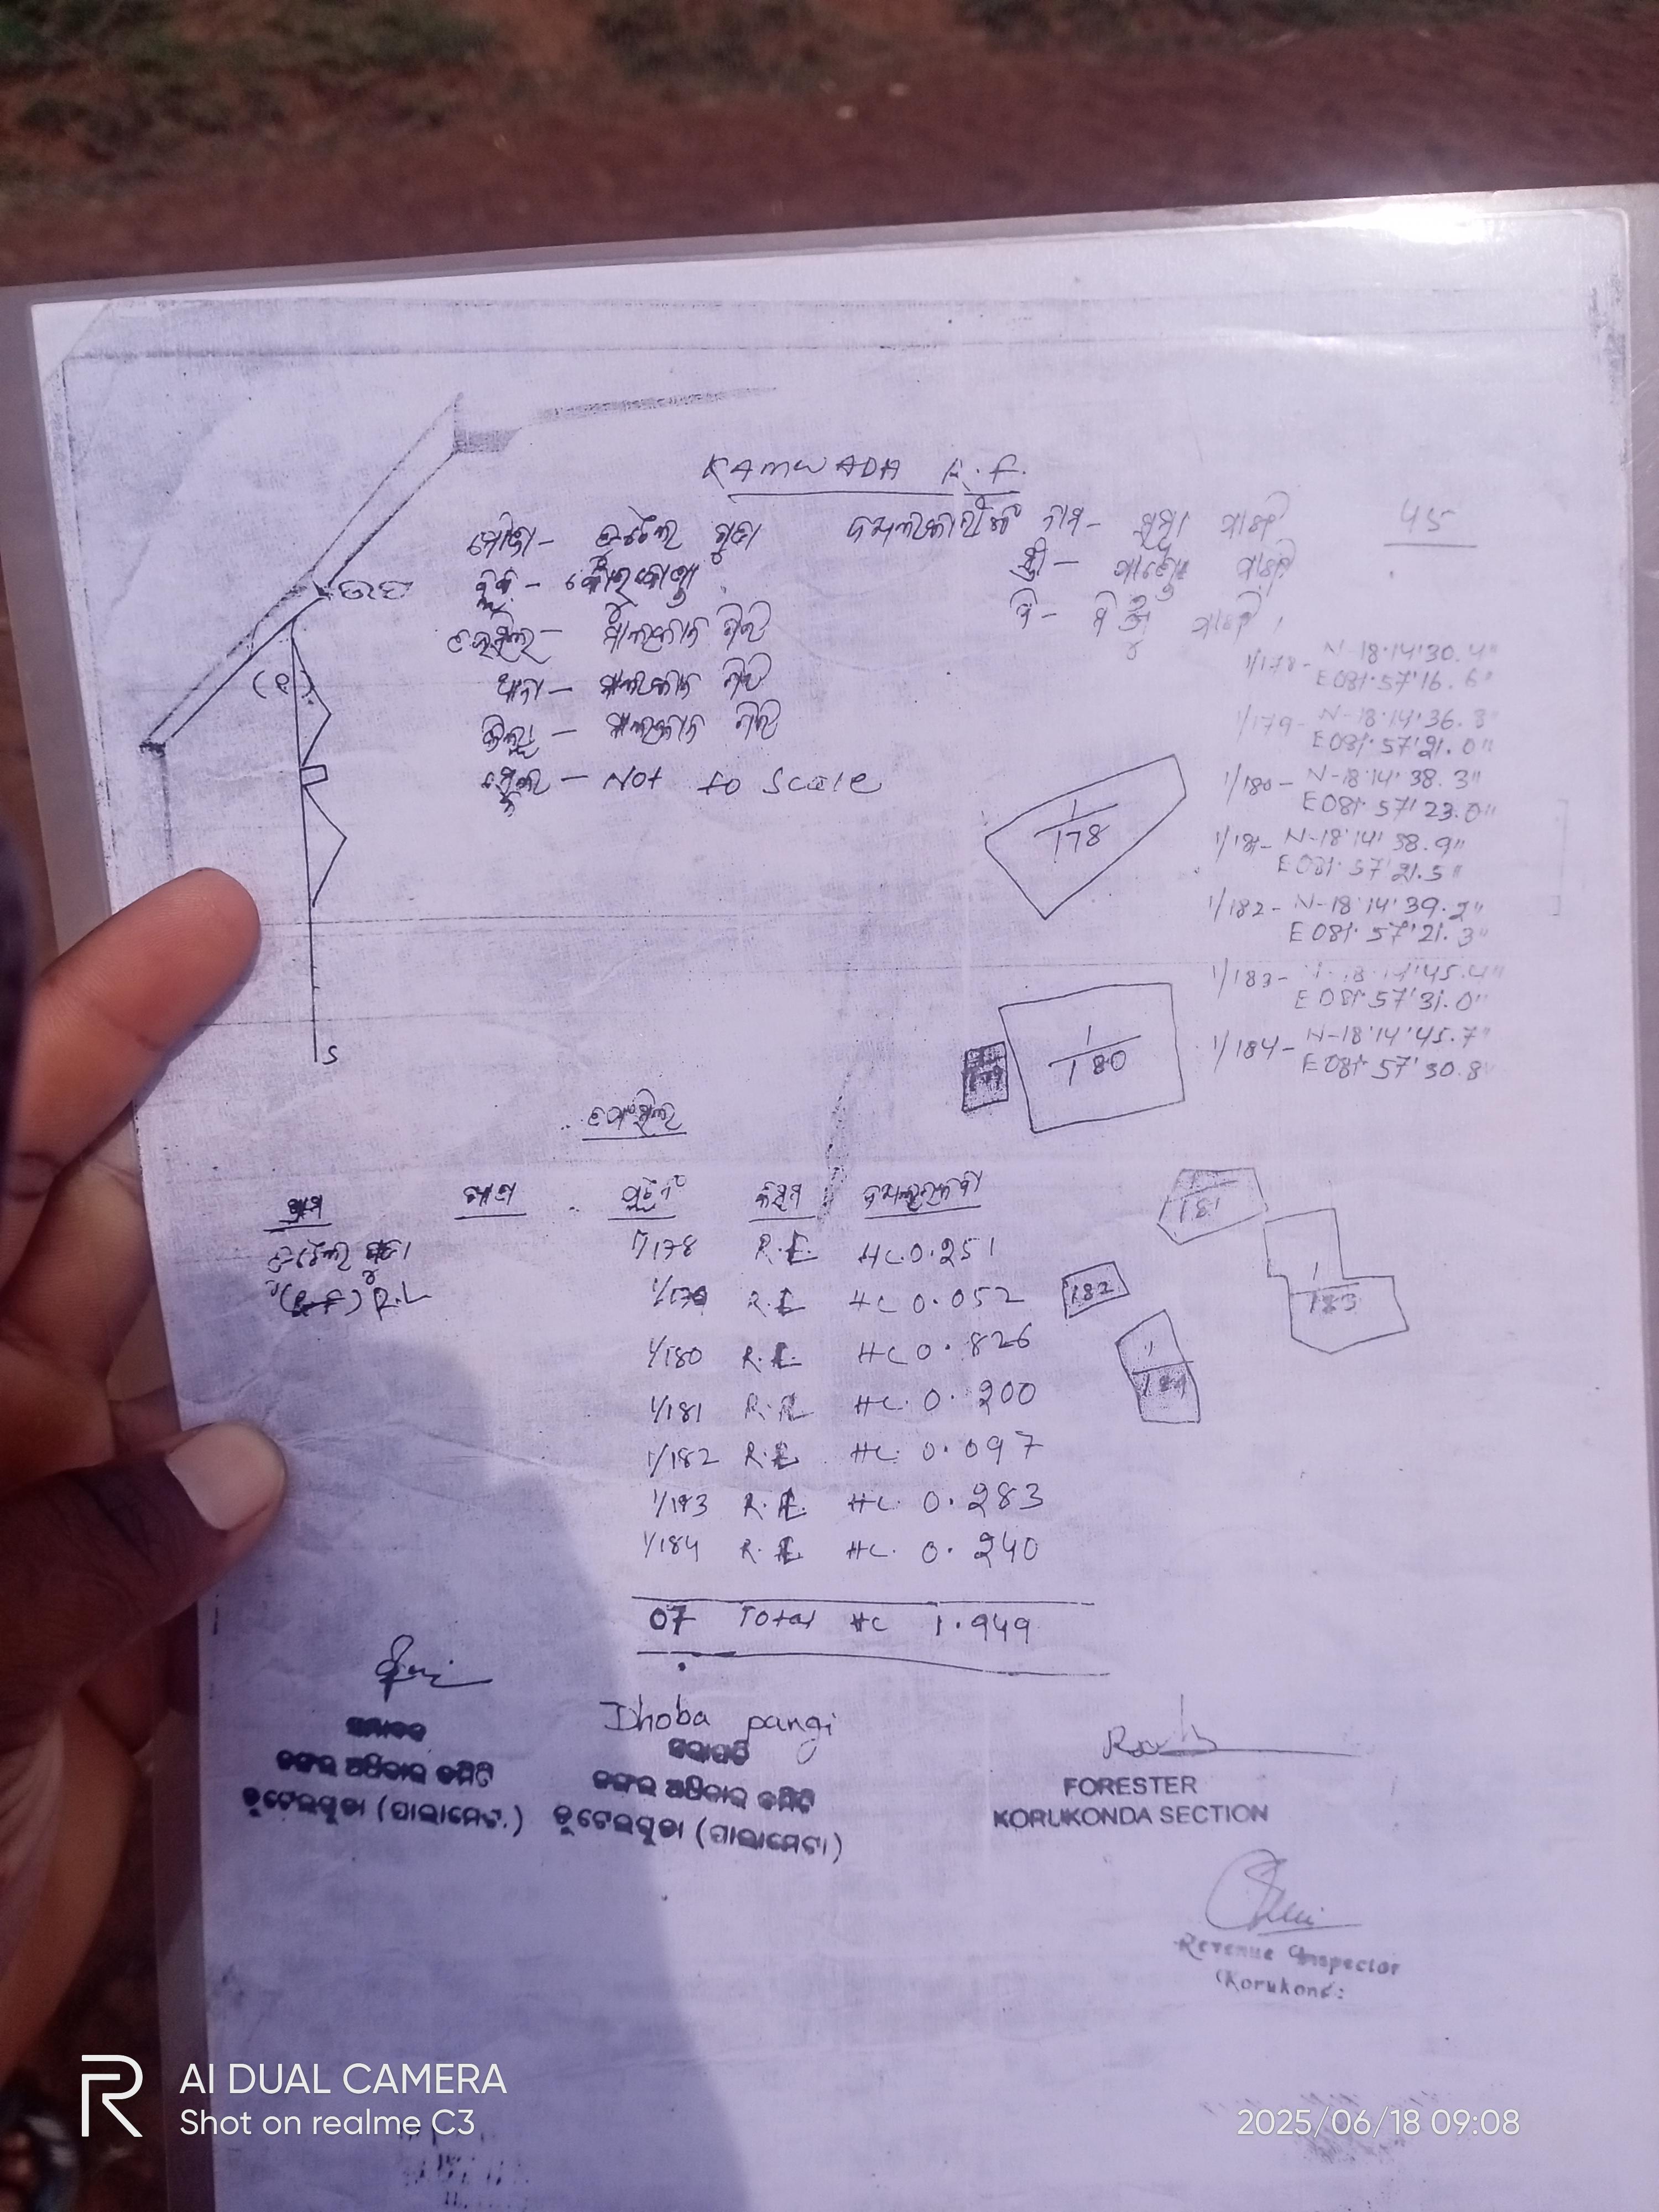 KAMWADA R.F.
ମୌଜା -
ଦଖଲକାରୀଙ୍କ ନାମ -
45
ବ୍ଲକ - କୋରକୋଣ୍ଡା
ସ୍ତ୍ରୀ -
ତହସିଲ - ମାଲକାନଗିରି
ପି -
ଥାନା - ମାଲକାନଗିରି
ଜିଲ୍ଲା - ମାଲକାନଗିରି
ସ୍କେଲ - Not to Scale
ଉଘ
S
1/178 - N-18°14'30.4"
E081°57'16.6"
1/179 - N-18°14'36.8"
E081°57'21.0"
1/180 - N-18°14'38.3"
E081°57'23.0"
1/181 - N-18°14'38.9"
E081°57'21.5"
1/182 - N-18°14'39.2"
E081°57'21.3"
1/183 - N-18°14'45.4"
E081°57'31.0"
1/184 - N-18°14'45.7"
E081°57'30.8"
1/178
1/180
181
182
1/183
1/184
ତଫସିଲ
ଗ୍ରାମ ଖାତା ପ୍ଲଟ ନଂ କିସମ ଦଖଲ ରକବା
1/178 R.F. HC 0.251
1/179 HC 0.052
1/180 HC 0.826
1/181 HC. 0.200
1/182 HC. 0.097
1/183 HC. 0.283
1/184 HC. 0.240
07 Total HC 1.949
Dhoba pangi
ସମ୍ପାଦକ
ଜଙ୍ଗଲ ଅଧିକାର କମିଟି
ଡୁଟେଲଗୁଡା (ପାଲାମେଟା)
ସଭାପତି
ଜଙ୍ଗଲ ଅଧିକାର କମିଟି
ଡୁଟେଲଗୁଡା (ପାଲାମେଟା)
FORESTER
KORUKONDA SECTION
Revenue Inspector
AI DUAL CAMERA
Shot on realme C3
2025/06/18 09:08